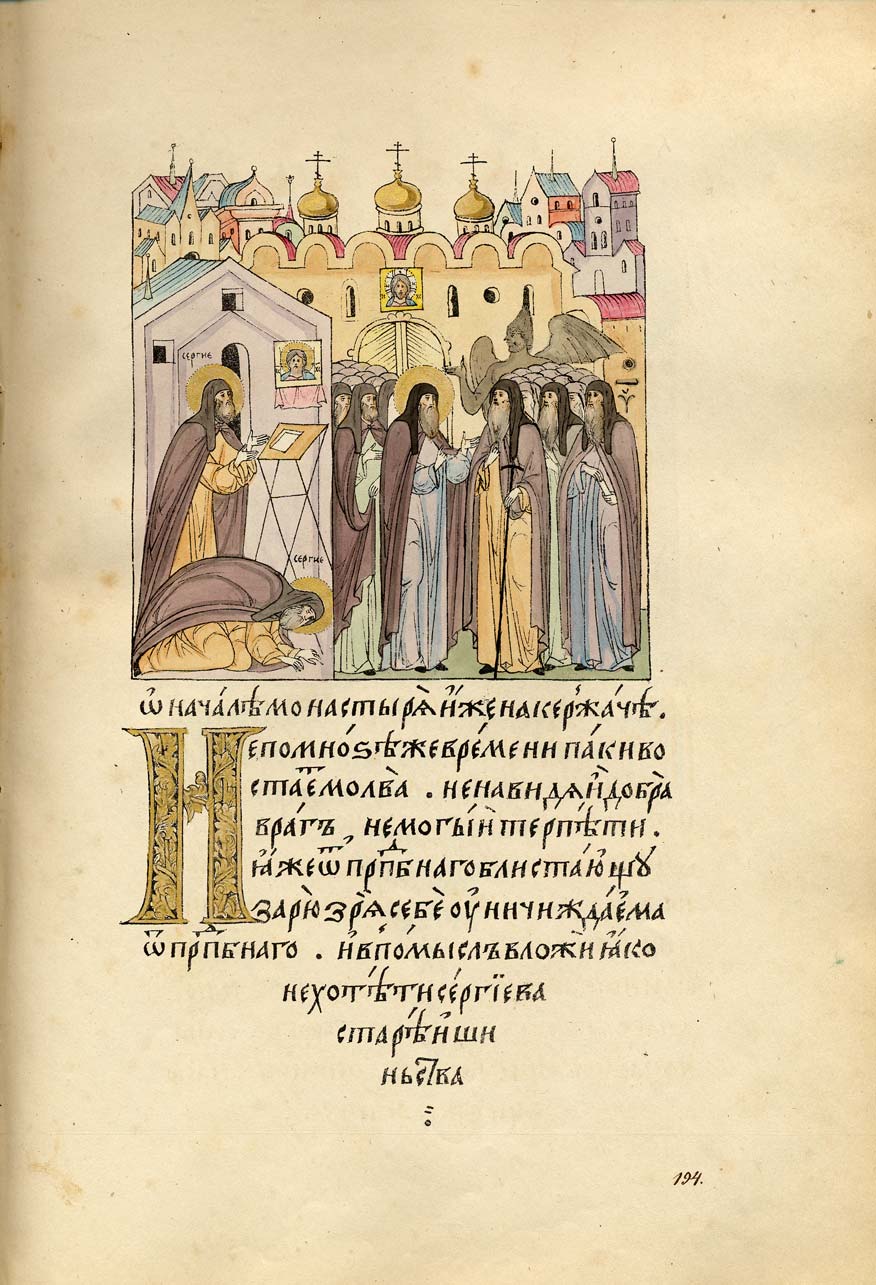 сергие
сергие
Ѡ нача́лѣ монастырѧ̀ и҆́же на кержа́чѣ.
Не по мно́ѕѣ же вре́мени па́ки во
стае́ⷮ молва̀. ненавидѧ́и҆ добра̀
вра́гъ, не могы́и҆ терпѣ́ти.
ꙗ҆́же ѿ прⷣпбнаго блиста́ющꙋ
зарю̀ зрѧ̀ себѐ оуничижда́ема
ѿ прⷣпбнаго. и҆ в помы́слъ вложѝ ꙗ҆́ко
не хотѣ́ти се́ргїева
старѣ́и҆ши
ньства
194.